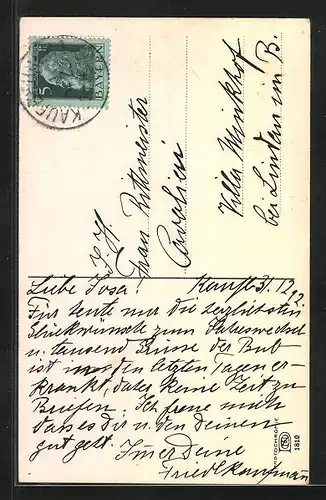 5
BAYERN
KAUF
I. H.
Frau Rittmeister
Villa Winkhof
bei Lindau im B.
Liebe Rosa!
Kauf 31. 12. 12.
Für heute nur die herzlichsten
Glückwünsche zum Jahreswechsel
u. tausend Grüsse der Bub
ist in letzten Tagen er-
krankt, daher keine Zeit zu
Briefen. Ich freue mich
dass es dir u. den deinen
gut geht. Immer Deine
Friedl Kaufmann
1810